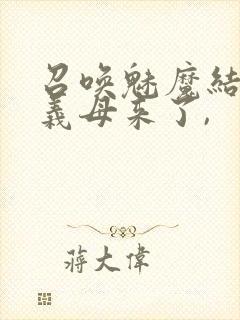 召唤魅魔结
義母来了,
蒋大偉